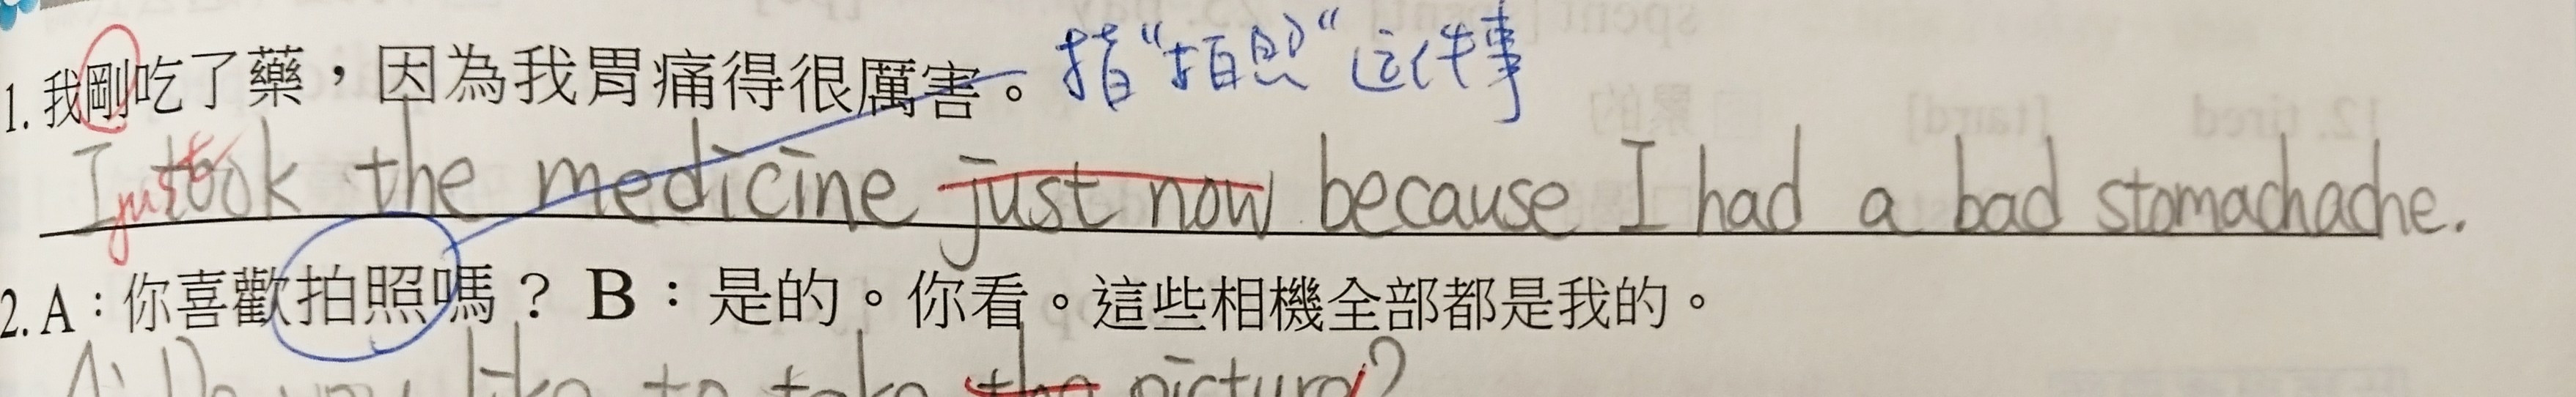 1. 我剛吃了藥，因為我胃痛得很厲害。指“拍照“這件事
I just took the medicine just now because I had a bad stomachache.
2. A：你喜歡拍照嗎？ B：是的。你看。這些相機全部都是我的。
A: Do you like to take the picture?